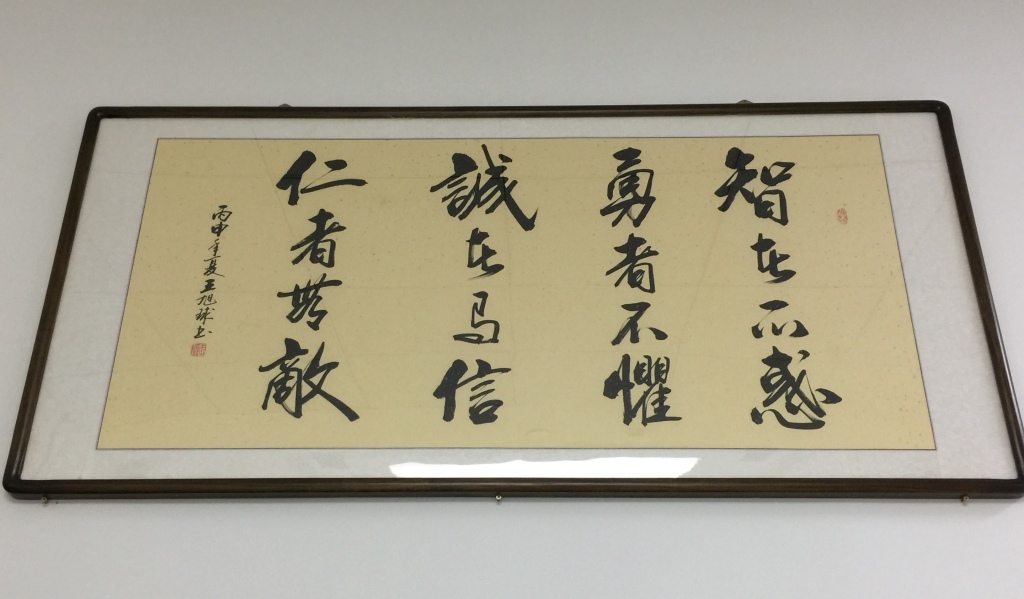 智者不惑
勇者不懼
誠者有信
仁者無敵
丙申夏王旭球书